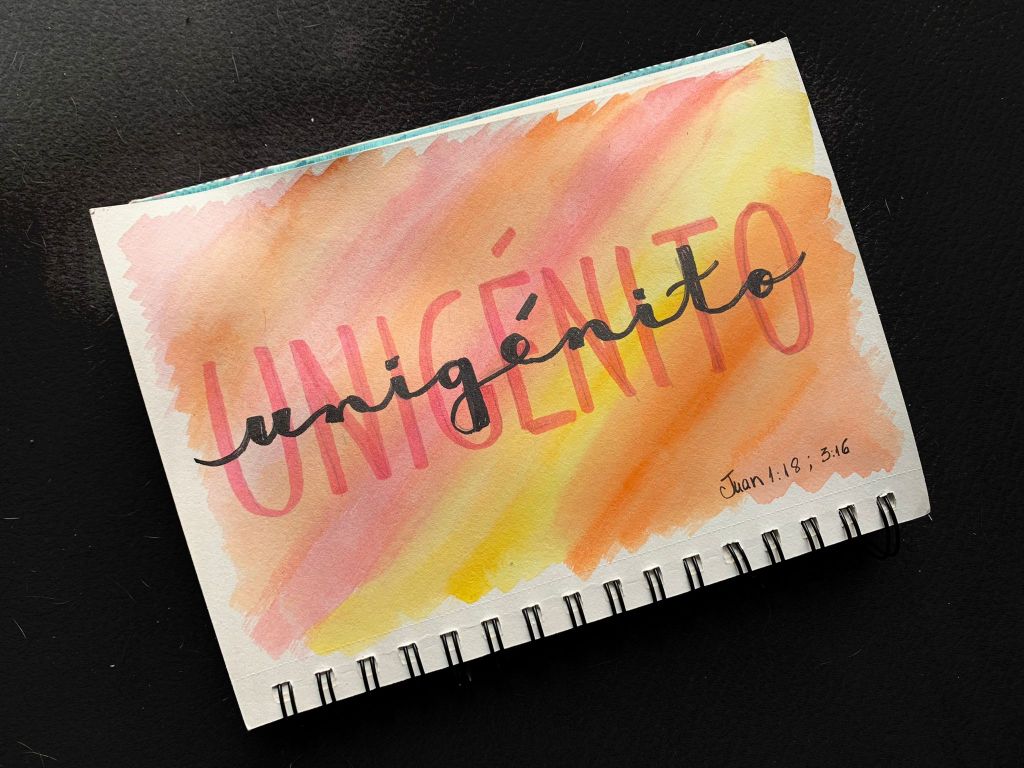 UNIGÉNITO
unigénito
Juan 1:18; 3:16